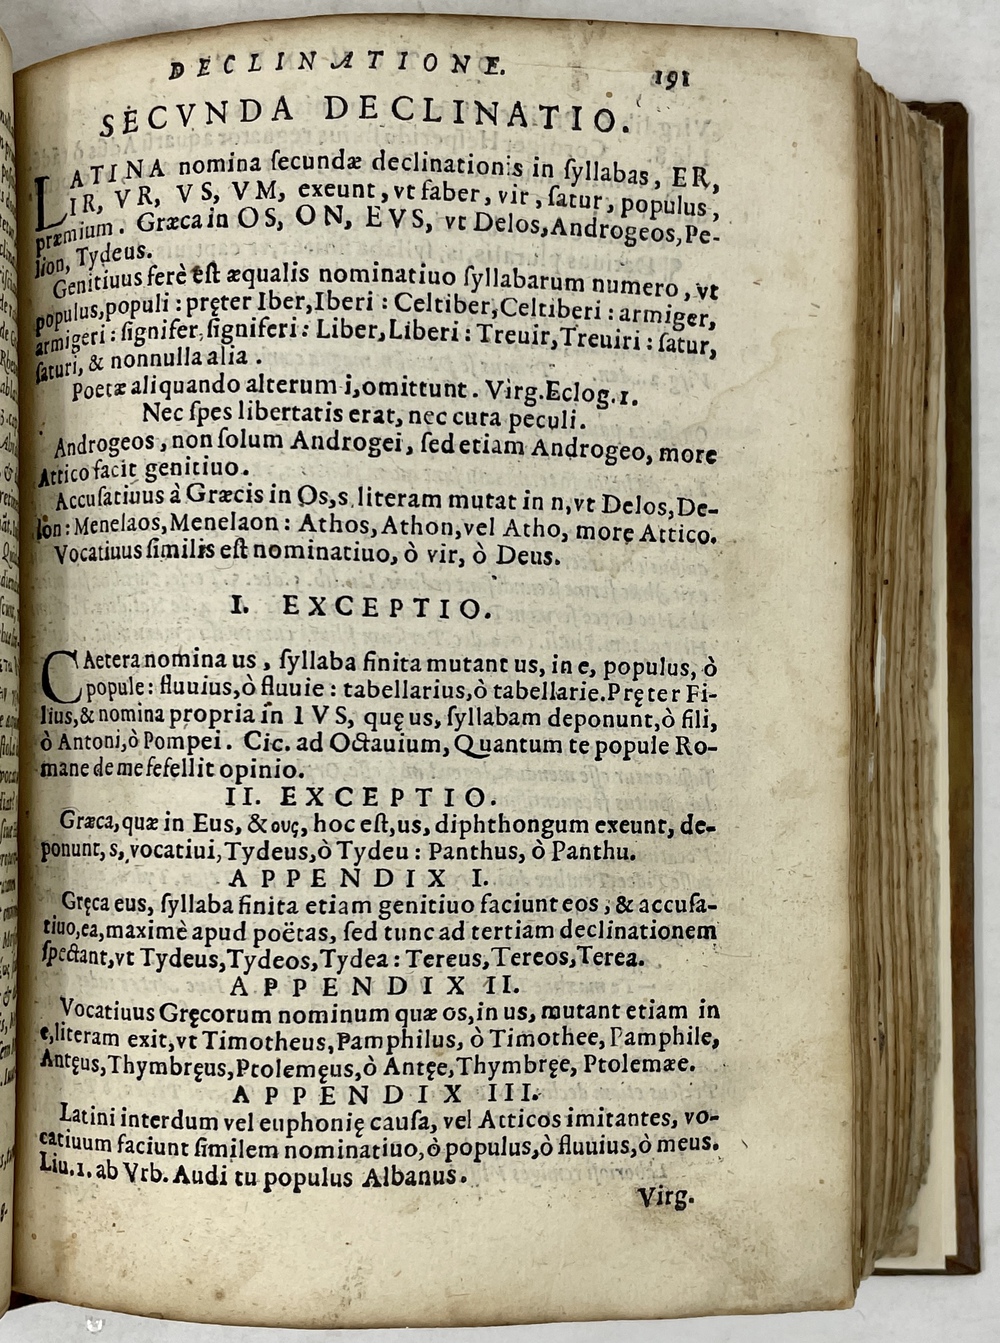 DECLINATIONE. 191
SECVNDA DECLINATIO.
LATINA nomina ſecundæ declinationis in ſyllabas, ER,
IR, VR, VS, VM, exeunt, vt faber, vir, ſatur, populus,
præmium. Græca in OS, ON, EVS, vt Delos, Androgeos, Pe-
lion, Tydeus.
Genitiuus ferè eſt æqualis nominatiuo ſyllabarum numero, vt
populus, populi: pręter Iber, Iberi: Celtiber, Celtiberi: armiger,
armigeri: ſignifer, ſigniferi: Liber, Liberi: Treuir, Treuiri: ſatur,
ſaturi, & nonnulla alia.
Poetæ aliquando alterum i, omittunt. Virg. Eclog. 1.
Nec ſpes libertatis erat, nec cura peculi.
Androgeos, non ſolum Androgei, ſed etiam Androgeo, more
Attico facit genitiuo.
Accuſatiuus à Græcis in Os, s, literam mutat in n, vt Delos, De-
lon: Menelaos, Menelaon: Athos, Athon, vel Atho, more Attico.
Vocatiuus ſimilis eſt nominatiuo, ò vir, ò Deus.
I. EXCEPTIO.
CAetera nomina us, ſyllaba finita mutant us, in e, populus, ò
popule: fluuius, ò fluuie: tabellarius, ò tabellarie. Pręter Fi-
lius, & nomina propria in IVS, quę us, ſyllabam deponunt, ò fili,
ò Antoni, ò Pompei. Cic. ad Octauium, Quantum te popule Ro-
mane de me fefellit opinio.
II. EXCEPTIO.
Græca, quæ in Eus, & ους, hoc eſt, us, diphthongum exeunt, de-
ponunt, s, vocatiui, Tydeus, ò Tydeu: Panthus, ò Panthu.
APPENDIX I.
Gręca eus, ſyllaba finita etiam genitiuo faciunt eos, & accuſa-
tiuo, ea, maximè apud poëtas, ſed tunc ad tertiam declinationem
ſpectant, vt Tydeus, Tydeos, Tydea: Tereus, Tereos, Terea.
APPENDIX II.
Vocatiuus Gręcorum nominum quæ os, in us, mutant etiam in
e, literam exit, vt Timotheus, Pamphilus, ò Timothee, Pamphile,
Antęus, Thymbręus, Ptolemęus, ò Antęe, Thymbręe, Ptolemæe.
APPENDIX III.
Latini interdum vel euphonię cauſa, vel Atticos imitantes, vo-
catiuum faciunt ſimilem nominatiuo, ò populus, ò fluuius, ò meus.
Liu. 1. ab Vrb. Audi tu populus Albanus.
Virg.